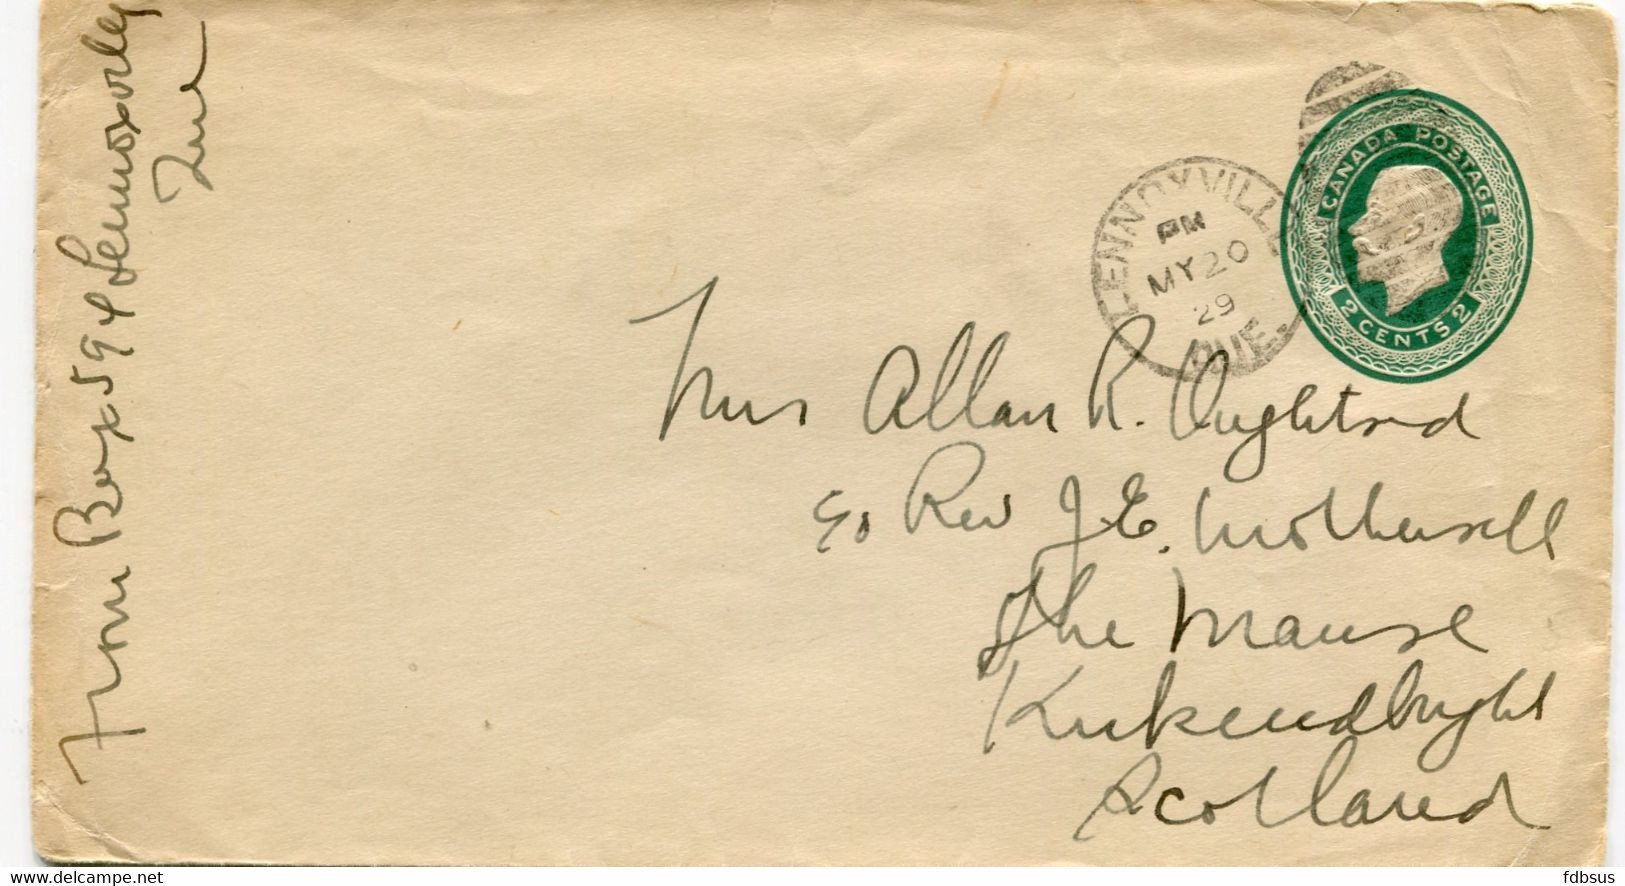 From Box 594 Lennoxville
Que
CANADA POSTAGE
2 CENTS 2
LENNOXVILLE
PM
MY 20
29
QUE.
Mrs Allan R. Oughtred
c/o Rev J. E. Mothersill
The Manse
Kirkcudbright
Scotland
www.delcampe.net
fdbsus